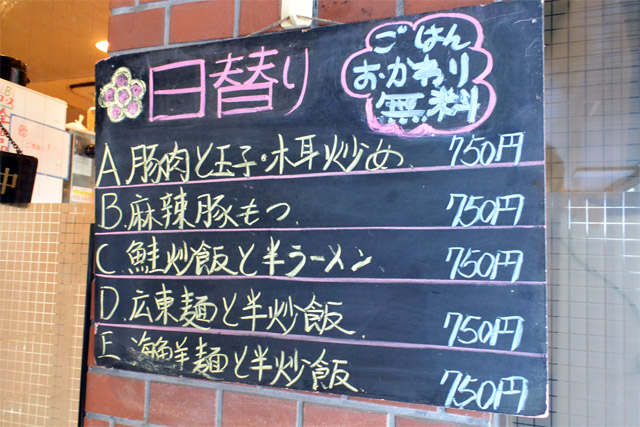 日替り
ごはん
おかわり
無料
A 豚肉と玉子・木耳炒め 750円
B. 麻辣豚もつ 750円
C. 鮭炒飯と半ラーメン 750円
D. 広東麺と半炒飯 750円
E 海鮮麺と半炒飯 750円
中